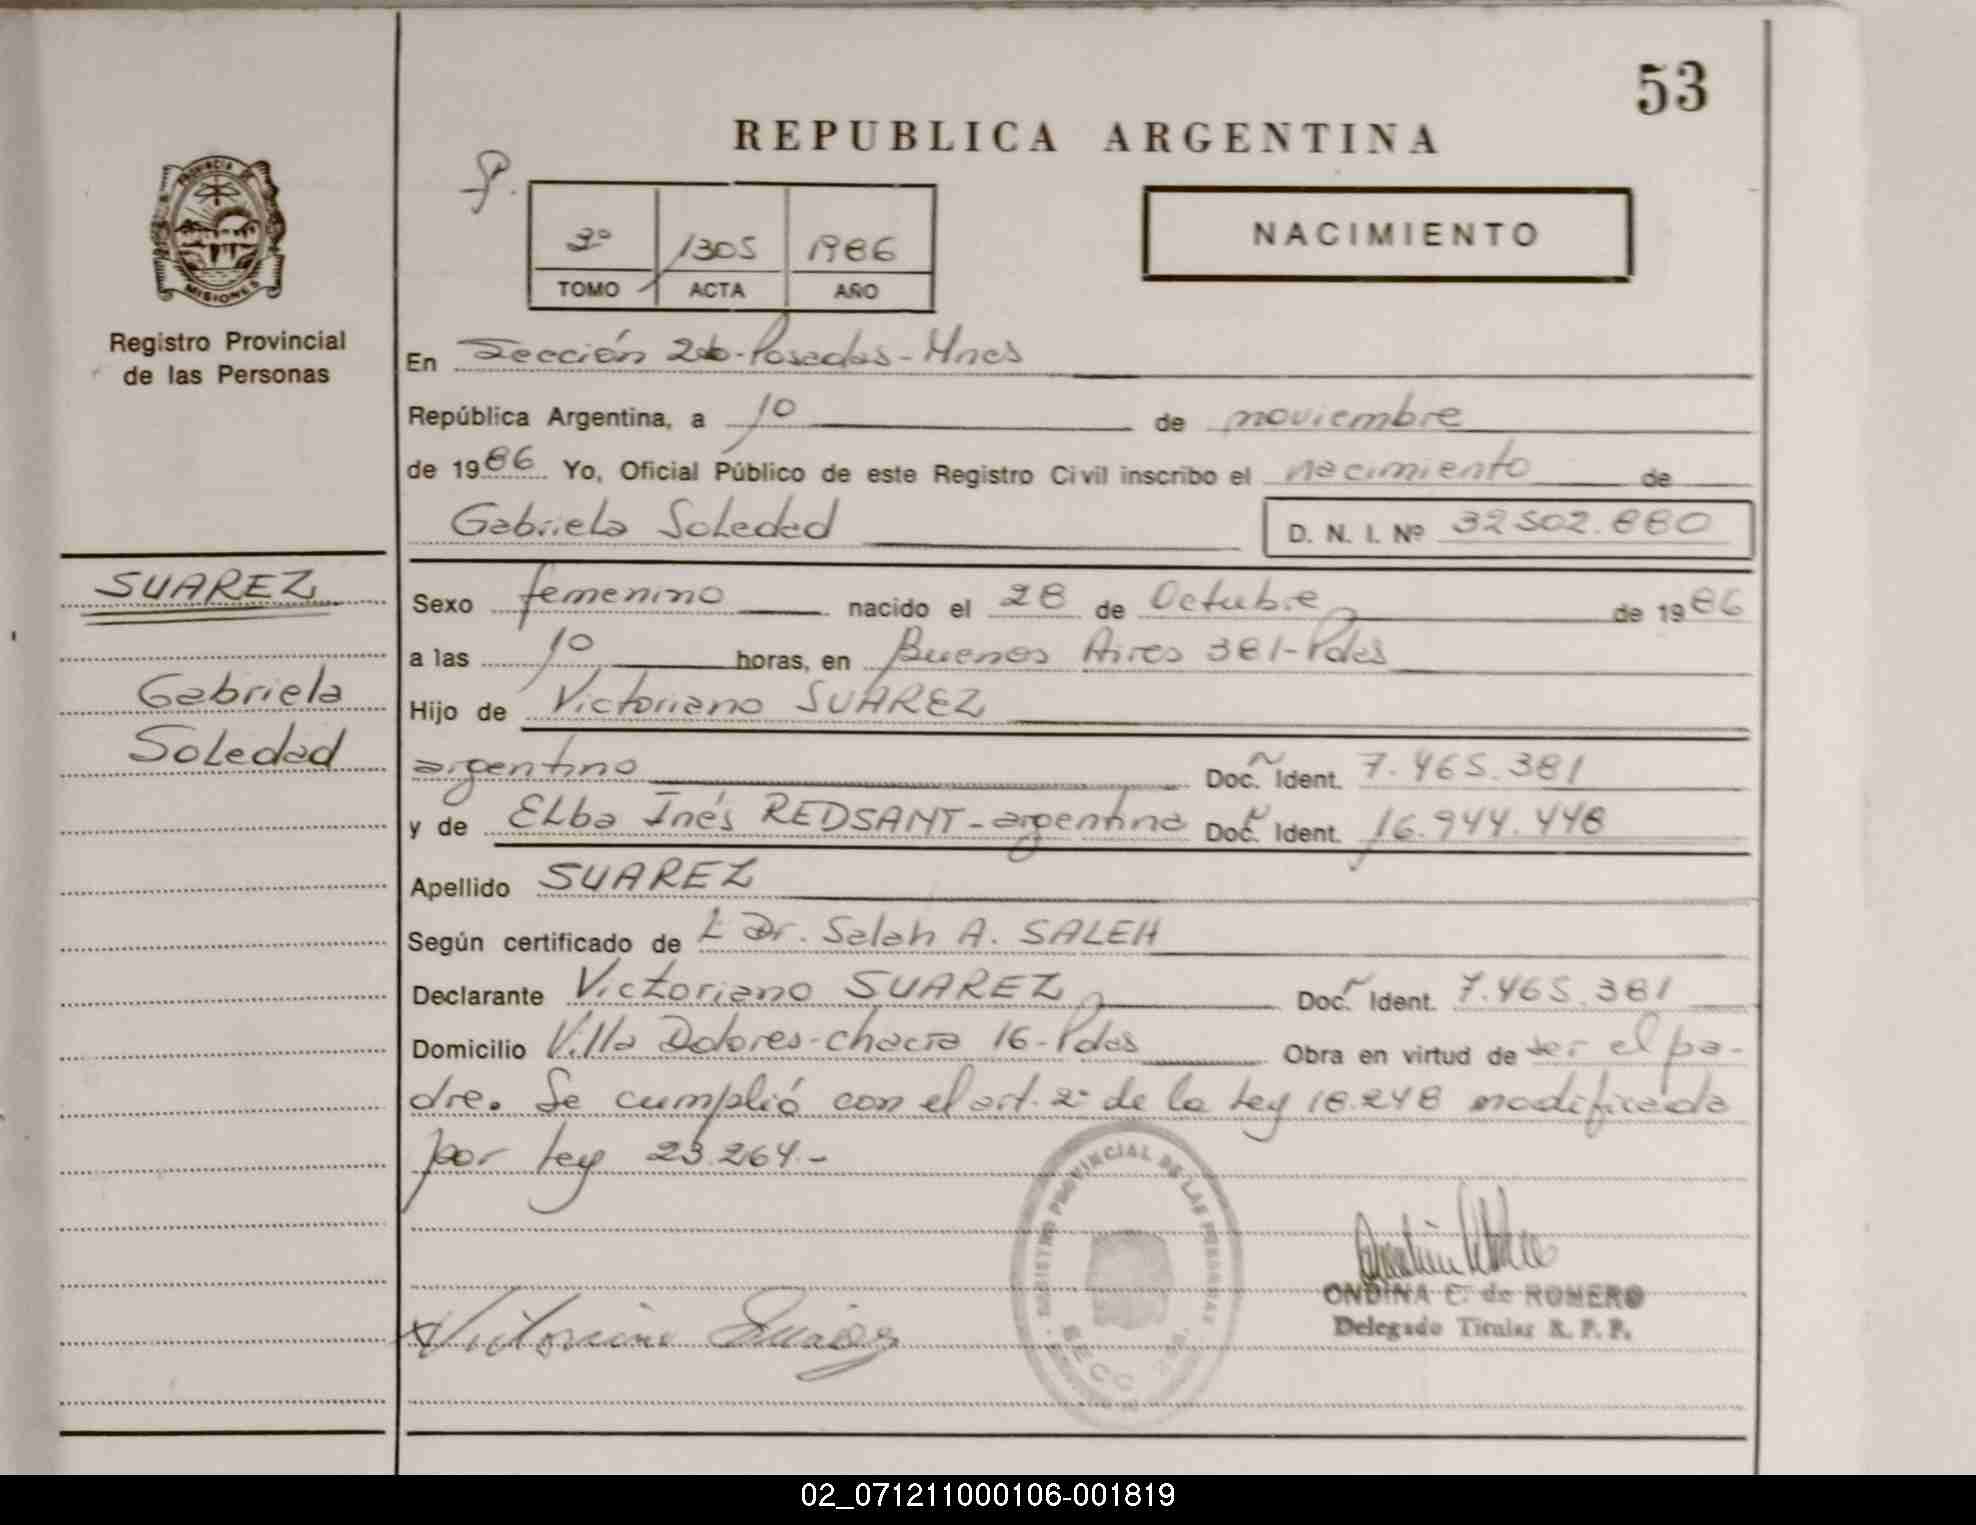 53
REPUBLICA ARGENTINA
PROVINCIA DE
MISIONES
Registro Provincial
de las Personas
3º 1305 1986
TOMO ACTA AÑO
NACIMIENTO
En Sección 2da-Posadas-Mnes
República Argentina, a 10 de noviembre
de 1986 Yo, Oficial Público de este Registro Civil inscribo el nacimiento de
Gabriela Soledad D. N. I. Nº 32502.880
SUAREZ
Gabriela
Soledad
Sexo femenino nacido el 28 de Octubre de 1986
a las 10 horas, en Buenos Aires 381-Pdas
Hijo de Victoriano SUAREZ
argentino Doc. Ident. 7.465.381
y de ELba Inés REDSANT-argentina Doc. Ident. 16.944.448
Apellido SUAREZ
Según certificado de L Dr. Salah A. SALEH
Declarante Victoriano SUAREZ Doc. Ident. 7.465.381
Domicilio Villa Dolores-chacra 16-Pdas Obra en virtud de ser el pa-
dre. Se cumplió con el art. 2º de la Ley 18.248 modificada
por Ley 23.264.-
REGISTRO PROVINCIAL DE LAS PERSONAS
SECC.
ONDINA E. de ROMERO
Delegado Titular R. P. P.
Victoriano Suarez
02_071211000106-001819